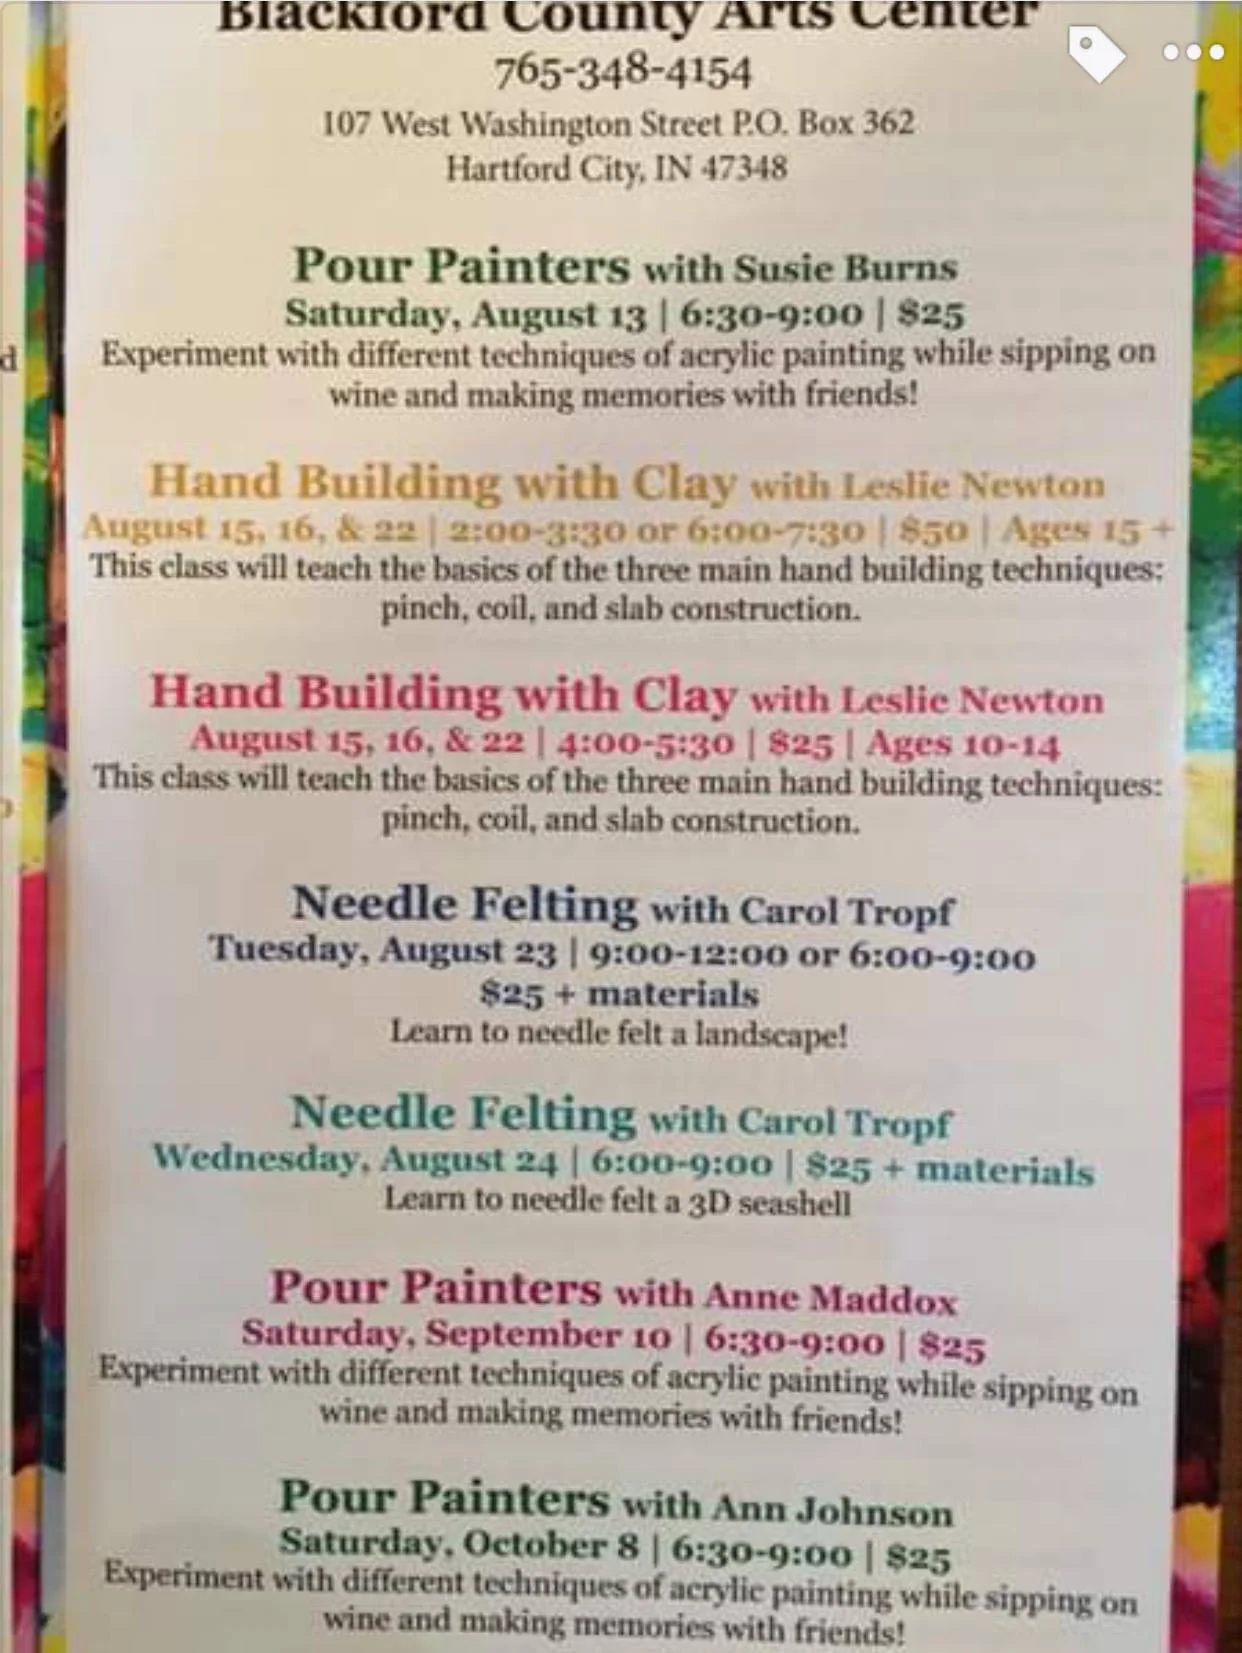 Blackford County Arts Center
765-348-4154
107 West Washington Street P.O. Box 362
Hartford City, IN 47348
Pour Painters with Susie Burns
Saturday, August 13 | 6:30-9:00 | $25
Experiment with different techniques of acrylic painting while sipping on
wine and making memories with friends!
Hand Building with Clay with Leslie Newton
August 15, 16, & 22 | 2:00-3:30 or 6:00-7:30 | $50 | Ages 15 +
This class will teach the basics of the three main hand building techniques:
pinch, coil, and slab construction.
Hand Building with Clay with Leslie Newton
August 15, 16, & 22 | 4:00-5:30 | $25 | Ages 10-14
This class will teach the basics of the three main hand building techniques:
pinch, coil, and slab construction.
Needle Felting with Carol Tropf
Tuesday, August 23 | 9:00-12:00 or 6:00-9:00
$25 + materials
Learn to needle felt a landscape!
Needle Felting with Carol Tropf
Wednesday, August 24 | 6:00-9:00 | $25 + materials
Learn to needle felt a 3D seashell
Pour Painters with Anne Maddox
Saturday, September 10 | 6:30-9:00 | $25
Experiment with different techniques of acrylic painting while sipping on
wine and making memories with friends!
Pour Painters with Ann Johnson
Saturday, October 8 | 6:30-9:00 | $25
Experiment with different techniques of acrylic painting while sipping on
wine and making memories with friends!